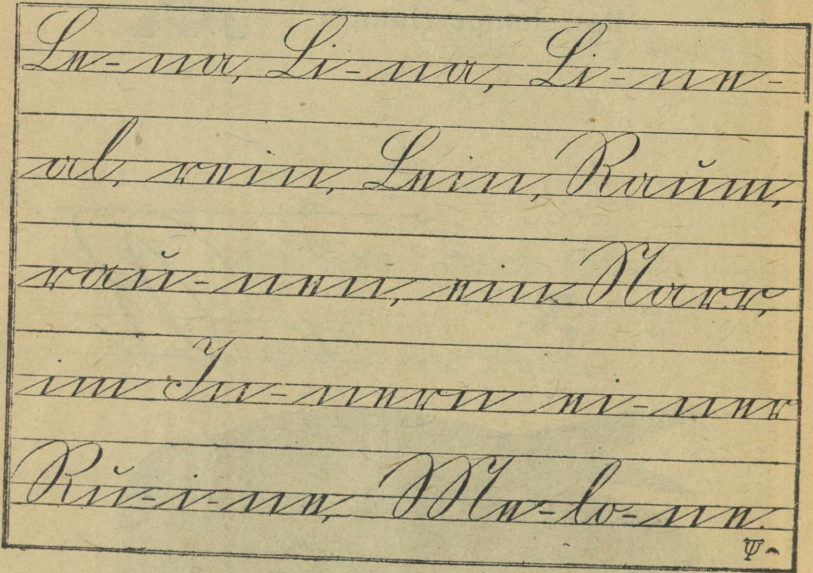 Le-na, Li-na, Li-ne-
al, rein, Lein, Raum,
rau-nen, ein Narr,
im In-nern ei-ner
Ru-i-ne, Me-lo-ne.